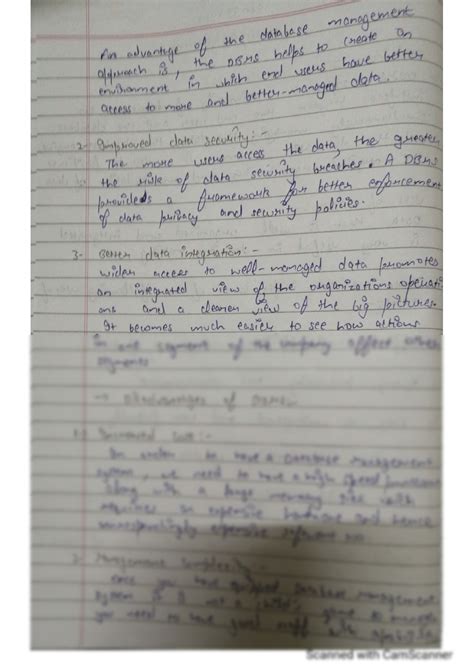 An advantage of the database management
approach is, the DBMS helps to create an
environment in which end users have better
access to more and better-managed data.
2- Improved data security:-
The more users access the data, the greater
the risk of data security breaches. A DBMS
provides a framework for better enforcement
of data privacy and security policies.
3- Better data integration:-
wider access to well-managed data promotes
an integrated view of the organizations operati
ons and a clearer view of the big picture.
It becomes much easier to see how actions
in one segment of the company affect other
segments
→ disadvantages of DBMS
1-) Increased cost:-
In order to have a Database management
system, we need to have a high speed
along with a large memory size with
expensive hardware and hence
expensive
2- Management complexity:-
once you have Database management
system it is not a game to manage
you need to have good staff with
Scanned with CamScanner